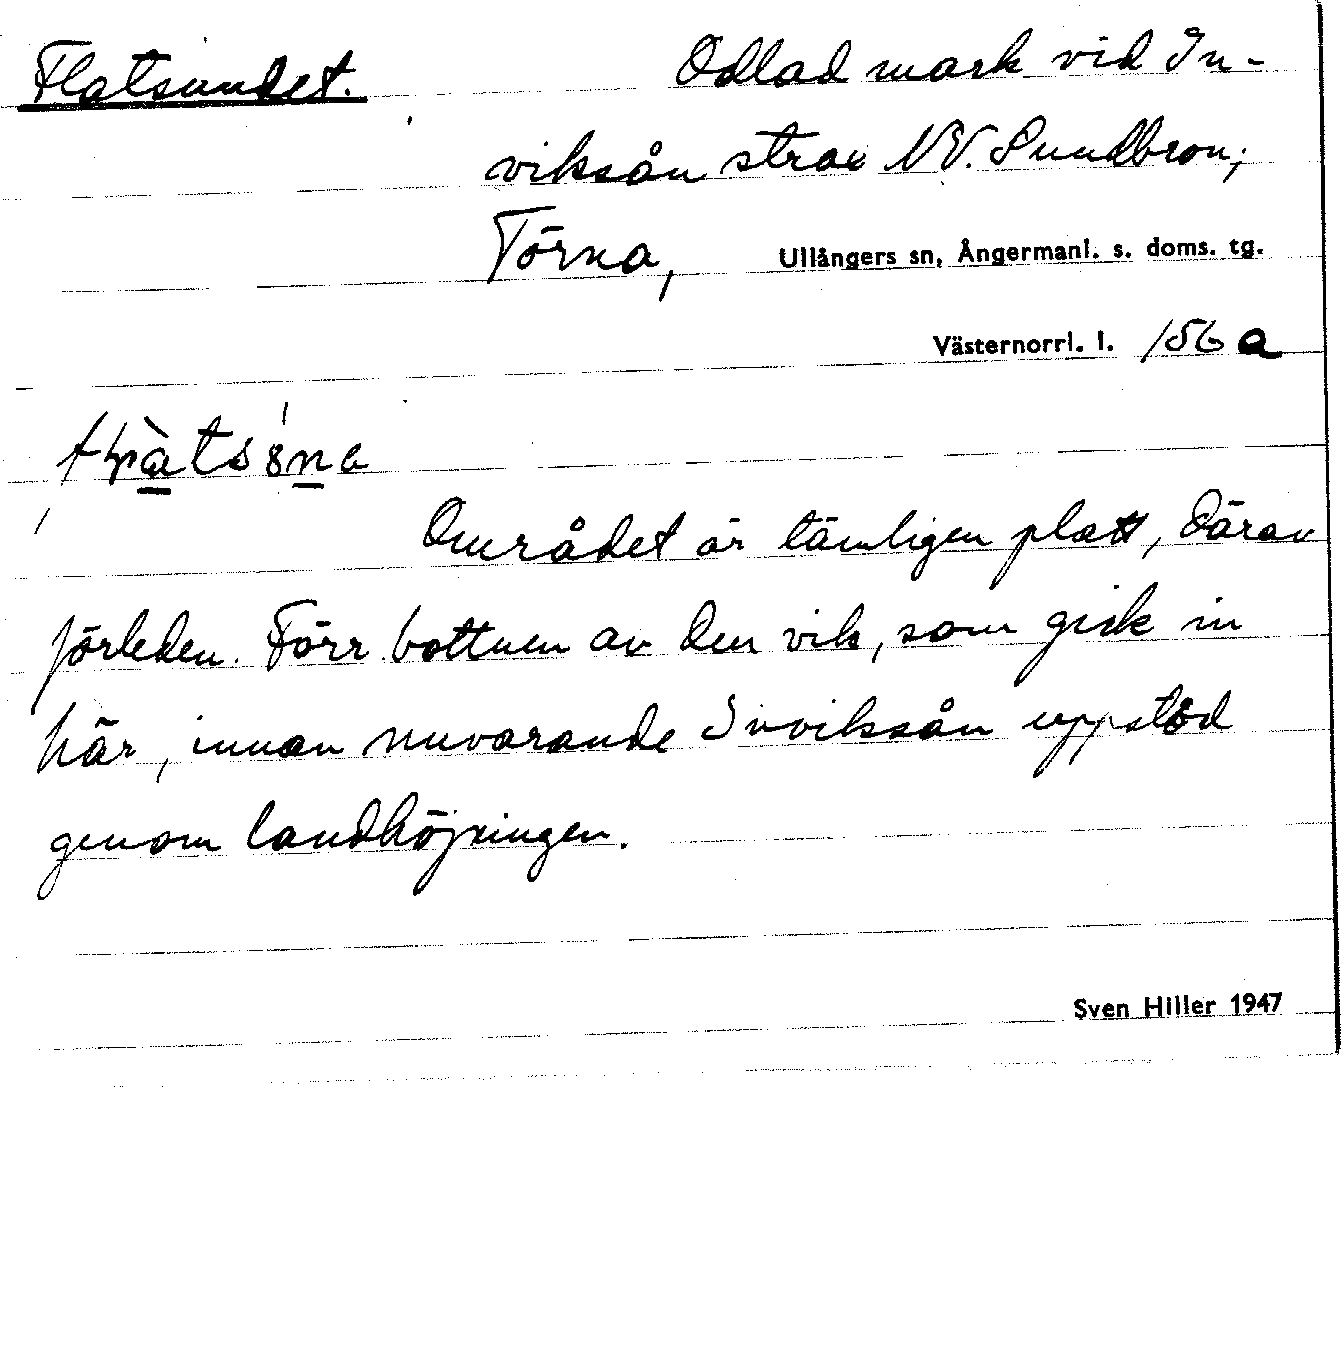 Flatsundet. Odlad mark vid In-
viksån strax NV. Sundbron;
Törna, Ullångers sn, Ångermanl. s. doms. tg.
Västernorrl. l. 156 a
Området är tämligen platt, därav
förleden. Förr bottnen av den vik, som gick in
här, innan nuvarande Inviksån uppstod
genom landhöjningen.
Sven Hiller 1947